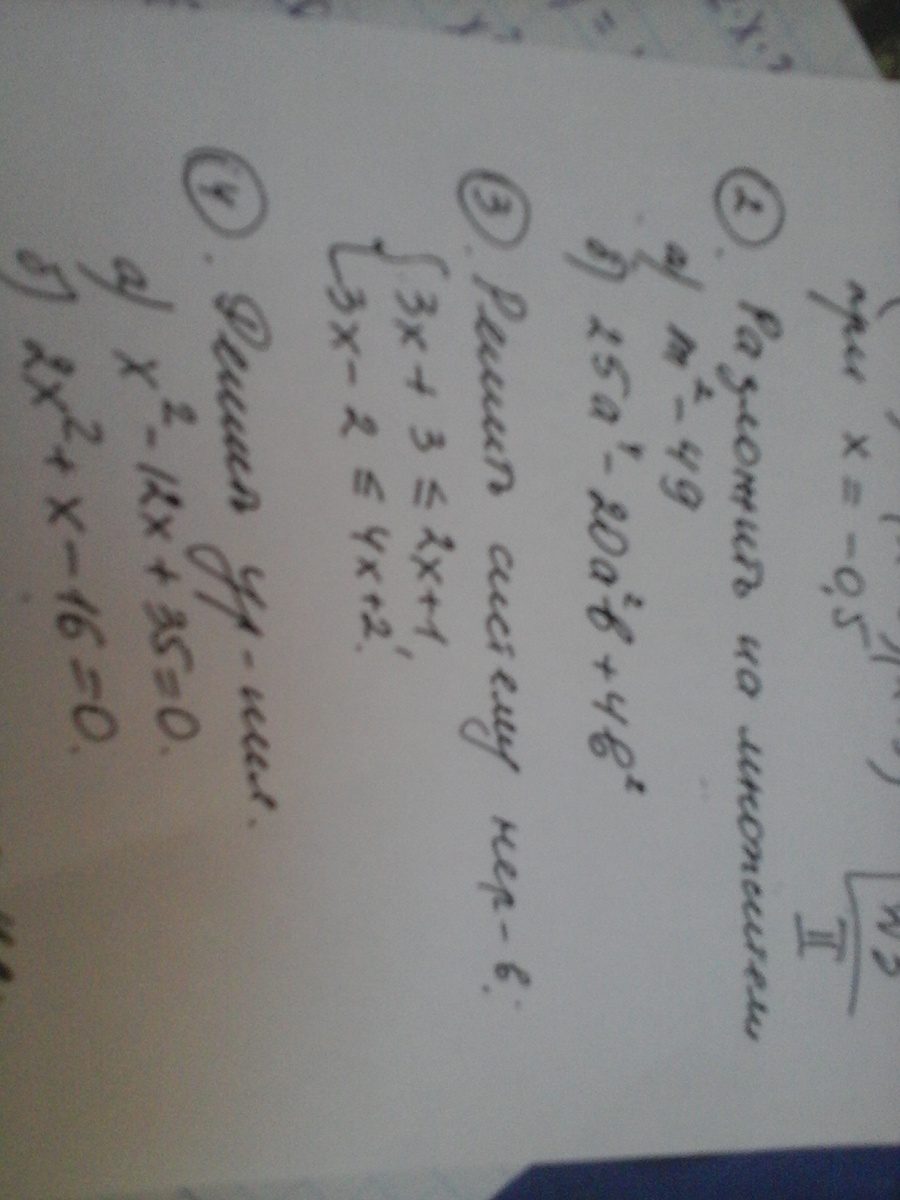 при x = -0,5
N3
II
② Разложить на множители
а) m² - 49
б) 25a⁴ - 20a²b + 4b²
③ Решить систему нер-в:
{3x + 3 ≤ 2x+1,
{3x - 2 ≤ 4x+2.
④ Решить ур-ния.
а) x² - 12x + 35 = 0.
б) 2x² + x - 16 = 0.